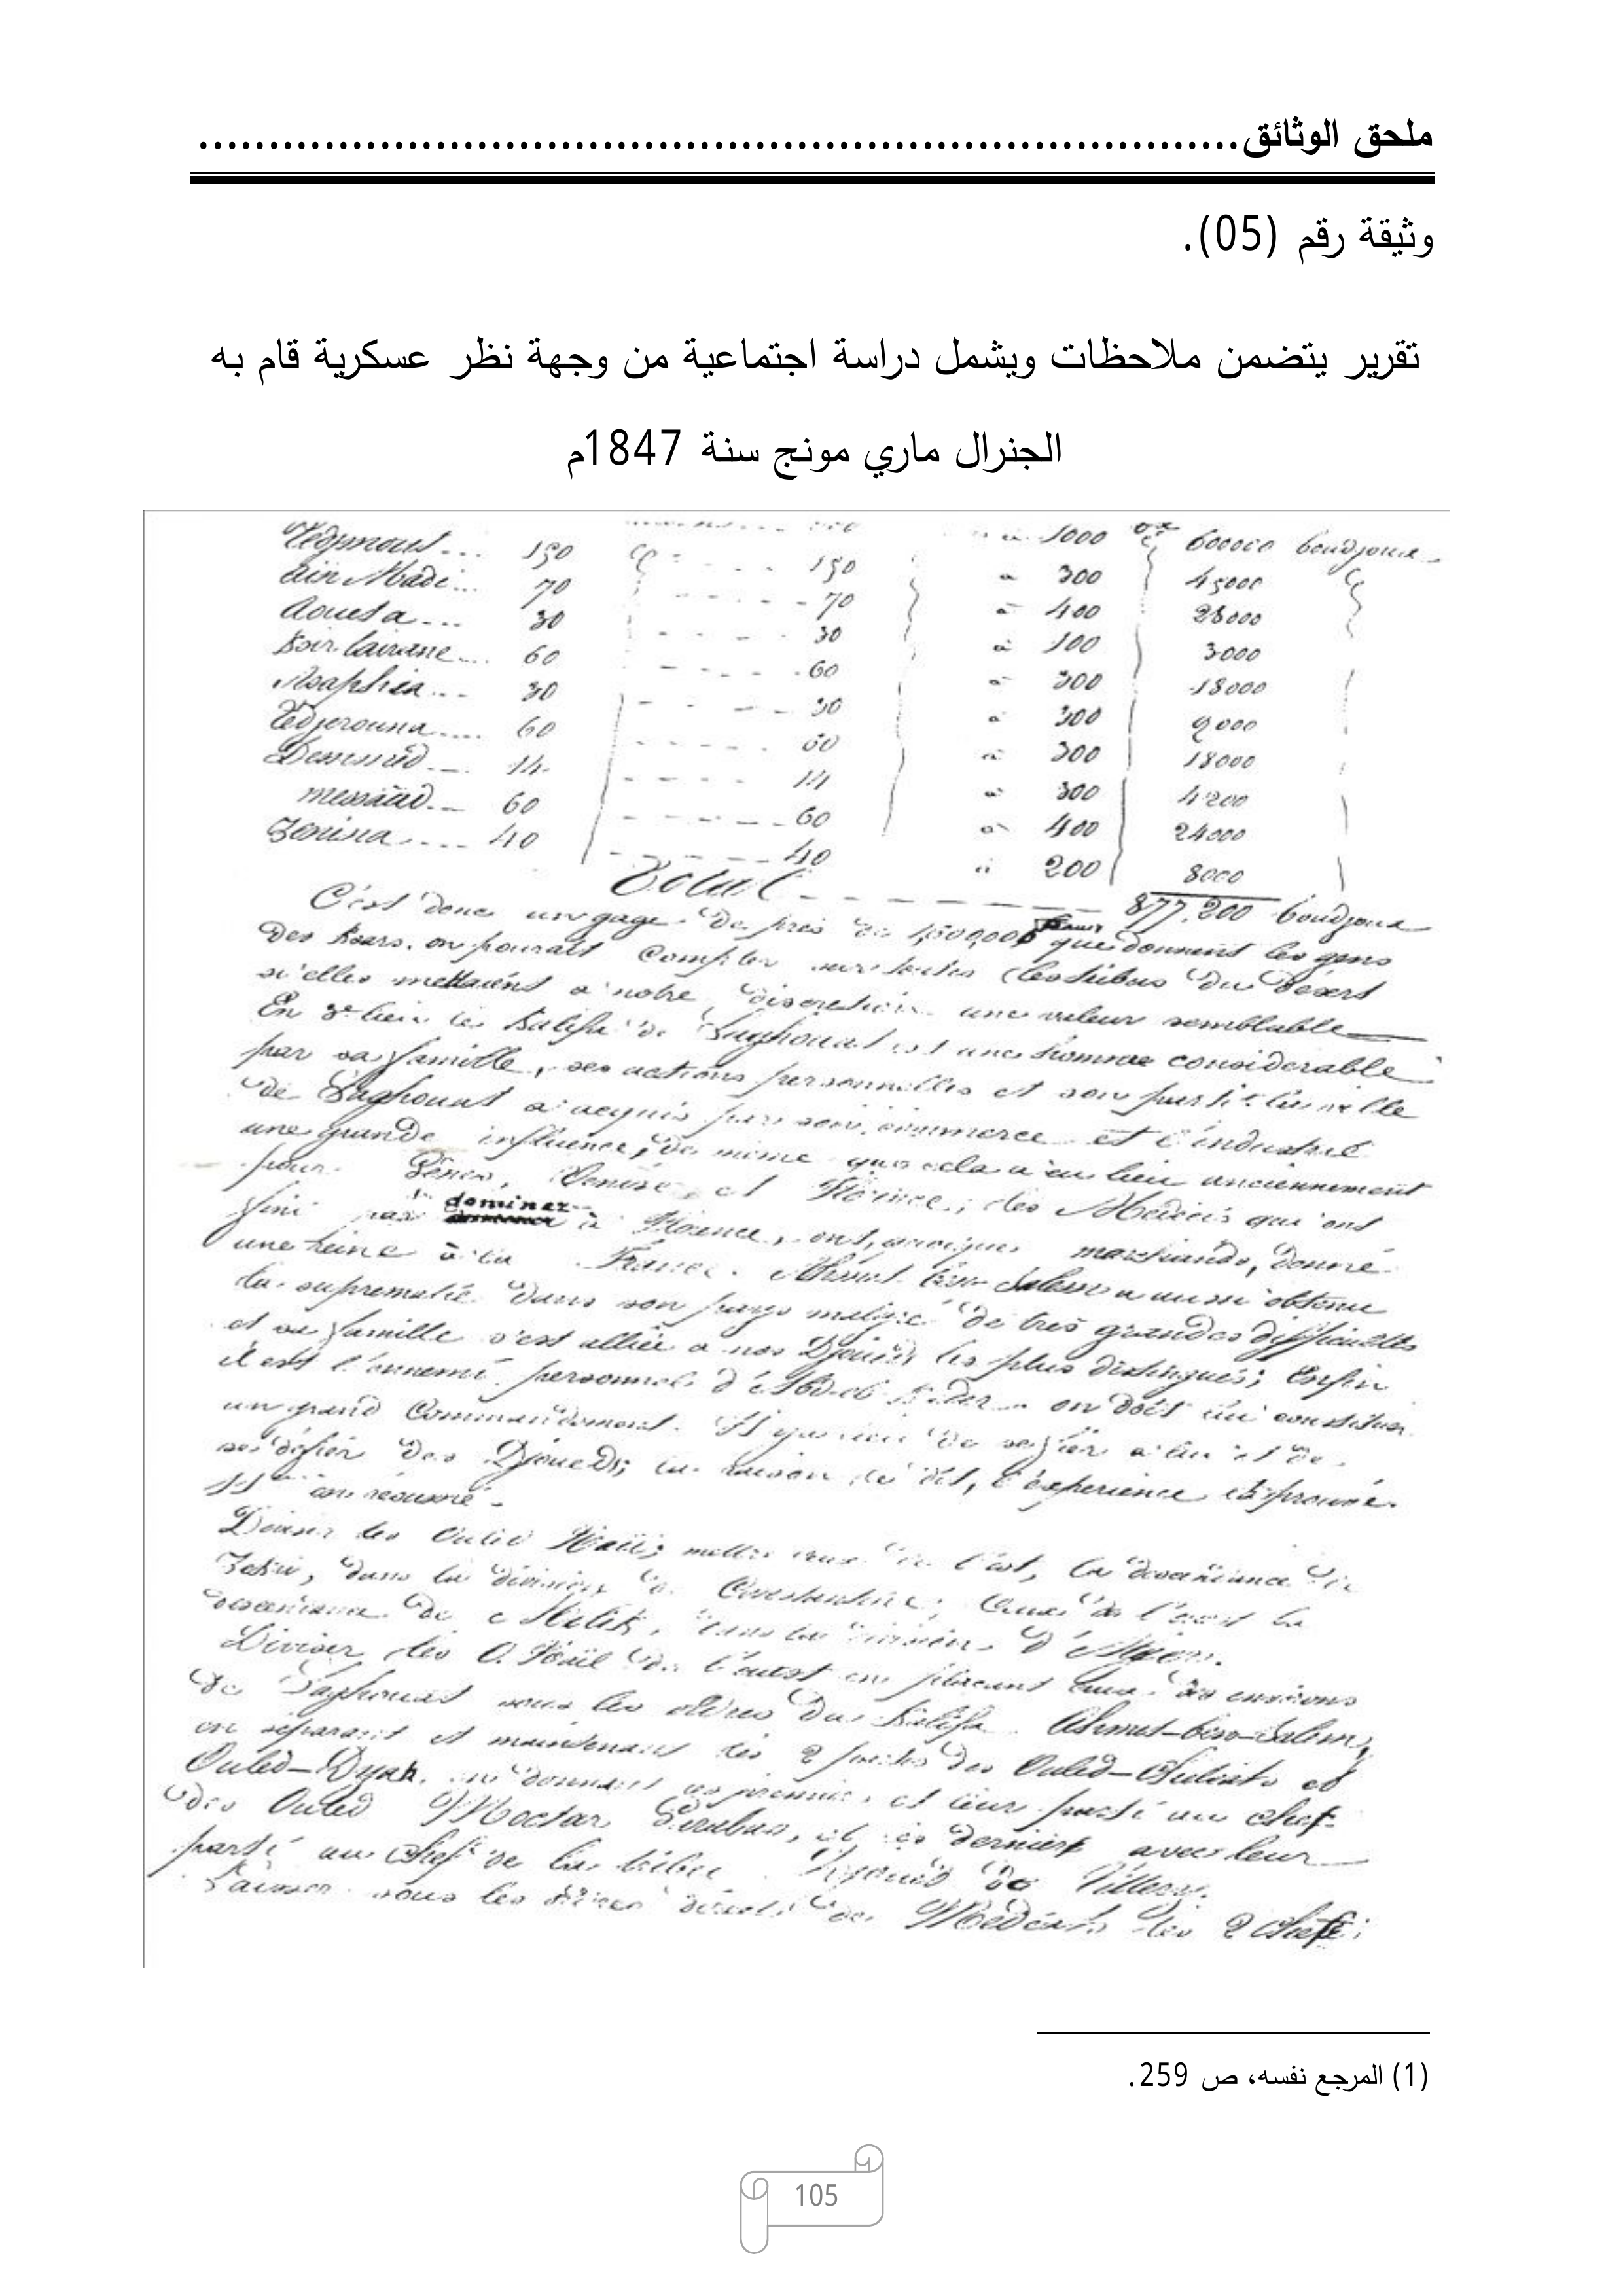 ملحق الوثائق...........................................................................
وثيقة رقم (05).
تقرير يتضمن ملاحظات ويشمل دراسة اجتماعية من وجهة نظر عسكرية قام به
الجنرال ماري مونج سنة 1847م
à 1000 600000 boudjoux
Tedjmout... 150 150 à 300 45000
Ain Madi... 70 70 à 400 28000
Aoueta... 30 30 à 100 3000
60 60 à 300 18000
30 30 à 300 9000
Tedjerouna.... 60 60 à 300 18000
14 14 à 300 4200
messâad.. 60 60 à 400 24000
Zenina.... 40 40 à 200 8000
Total 877.200 boudjoux
C'est donc un gage de près de 1,500,000 que donnent les gens
des ksars. on pourait compter sur toutes les tribus du désert
si elles mettaient a notre discretion une valeur semblable
En 3e lieu le Kalifa de Laghouat est une homme considerable
par sa famille, ses actions personnelles et son parti. la ville
de Laghouat a acquis par son commerce et l'industrie
une grande influence, de même que cela a eu lieu anciennement
pour Gênes, Venise et Florence; les Médicis qui ont
fini par dominer à Florence, ont, quoique marchands, donné
une reine à la France. Ahmet ben Salem a aussi obtenu
la suprematie dans son pays malgré de très grandes difficultés
et sa famille s'est alliée a nos Djouad les plus distingués; Enfin
il est l'ennemi personnel d'Abd-el-Kader on doit lui constituer
un grand Commandement. Il y a lieu de se fier a lui et de
se défier des Djoueds; la raison le dit, l'experience l'a prouvé.
en résumé
Diviser les Ouled Naïl; mettre ceux de l'est, la descendance de
Zekri, dans la division de Constantine; Ceux de l'ouest la
descendance de Melik, dans la division d'Alger.
Diviser les O. Naïl de l'ouest en plaçant ceux des environs
de Laghouat sous les ordres du Kalifa Ahmet-ben-Salem,
en séparant et maintenant les 2 partis des Ouled
Ouled en donnant les premiers et leur parti au chef
des Ouled Moctar et ces derniers avec leur
parti au chef de la tribu
Laisser sous les ordres directs de Médéah les 2 chefs;
(1) المرجع نفسه، ص 259.
105